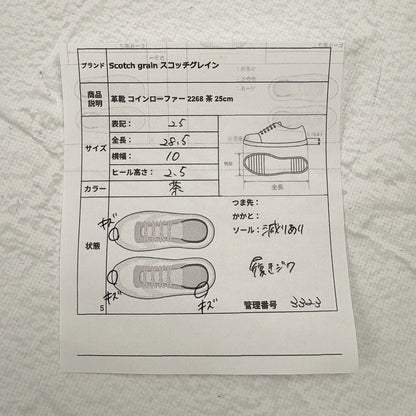 ブランド Scotch grain スコッチグレイン
商品説明 革靴 コインローファー 2268 茶 25cm
サイズ
表記： 25
全長： 28.5
横幅： 10
ヒール高さ： 2.5
横幅
全長
カラー 茶
状態
キズ
キズ
キズ
つま先：
かかと：
ソール： 減りあり
履きジワ
5
管理番号 3323